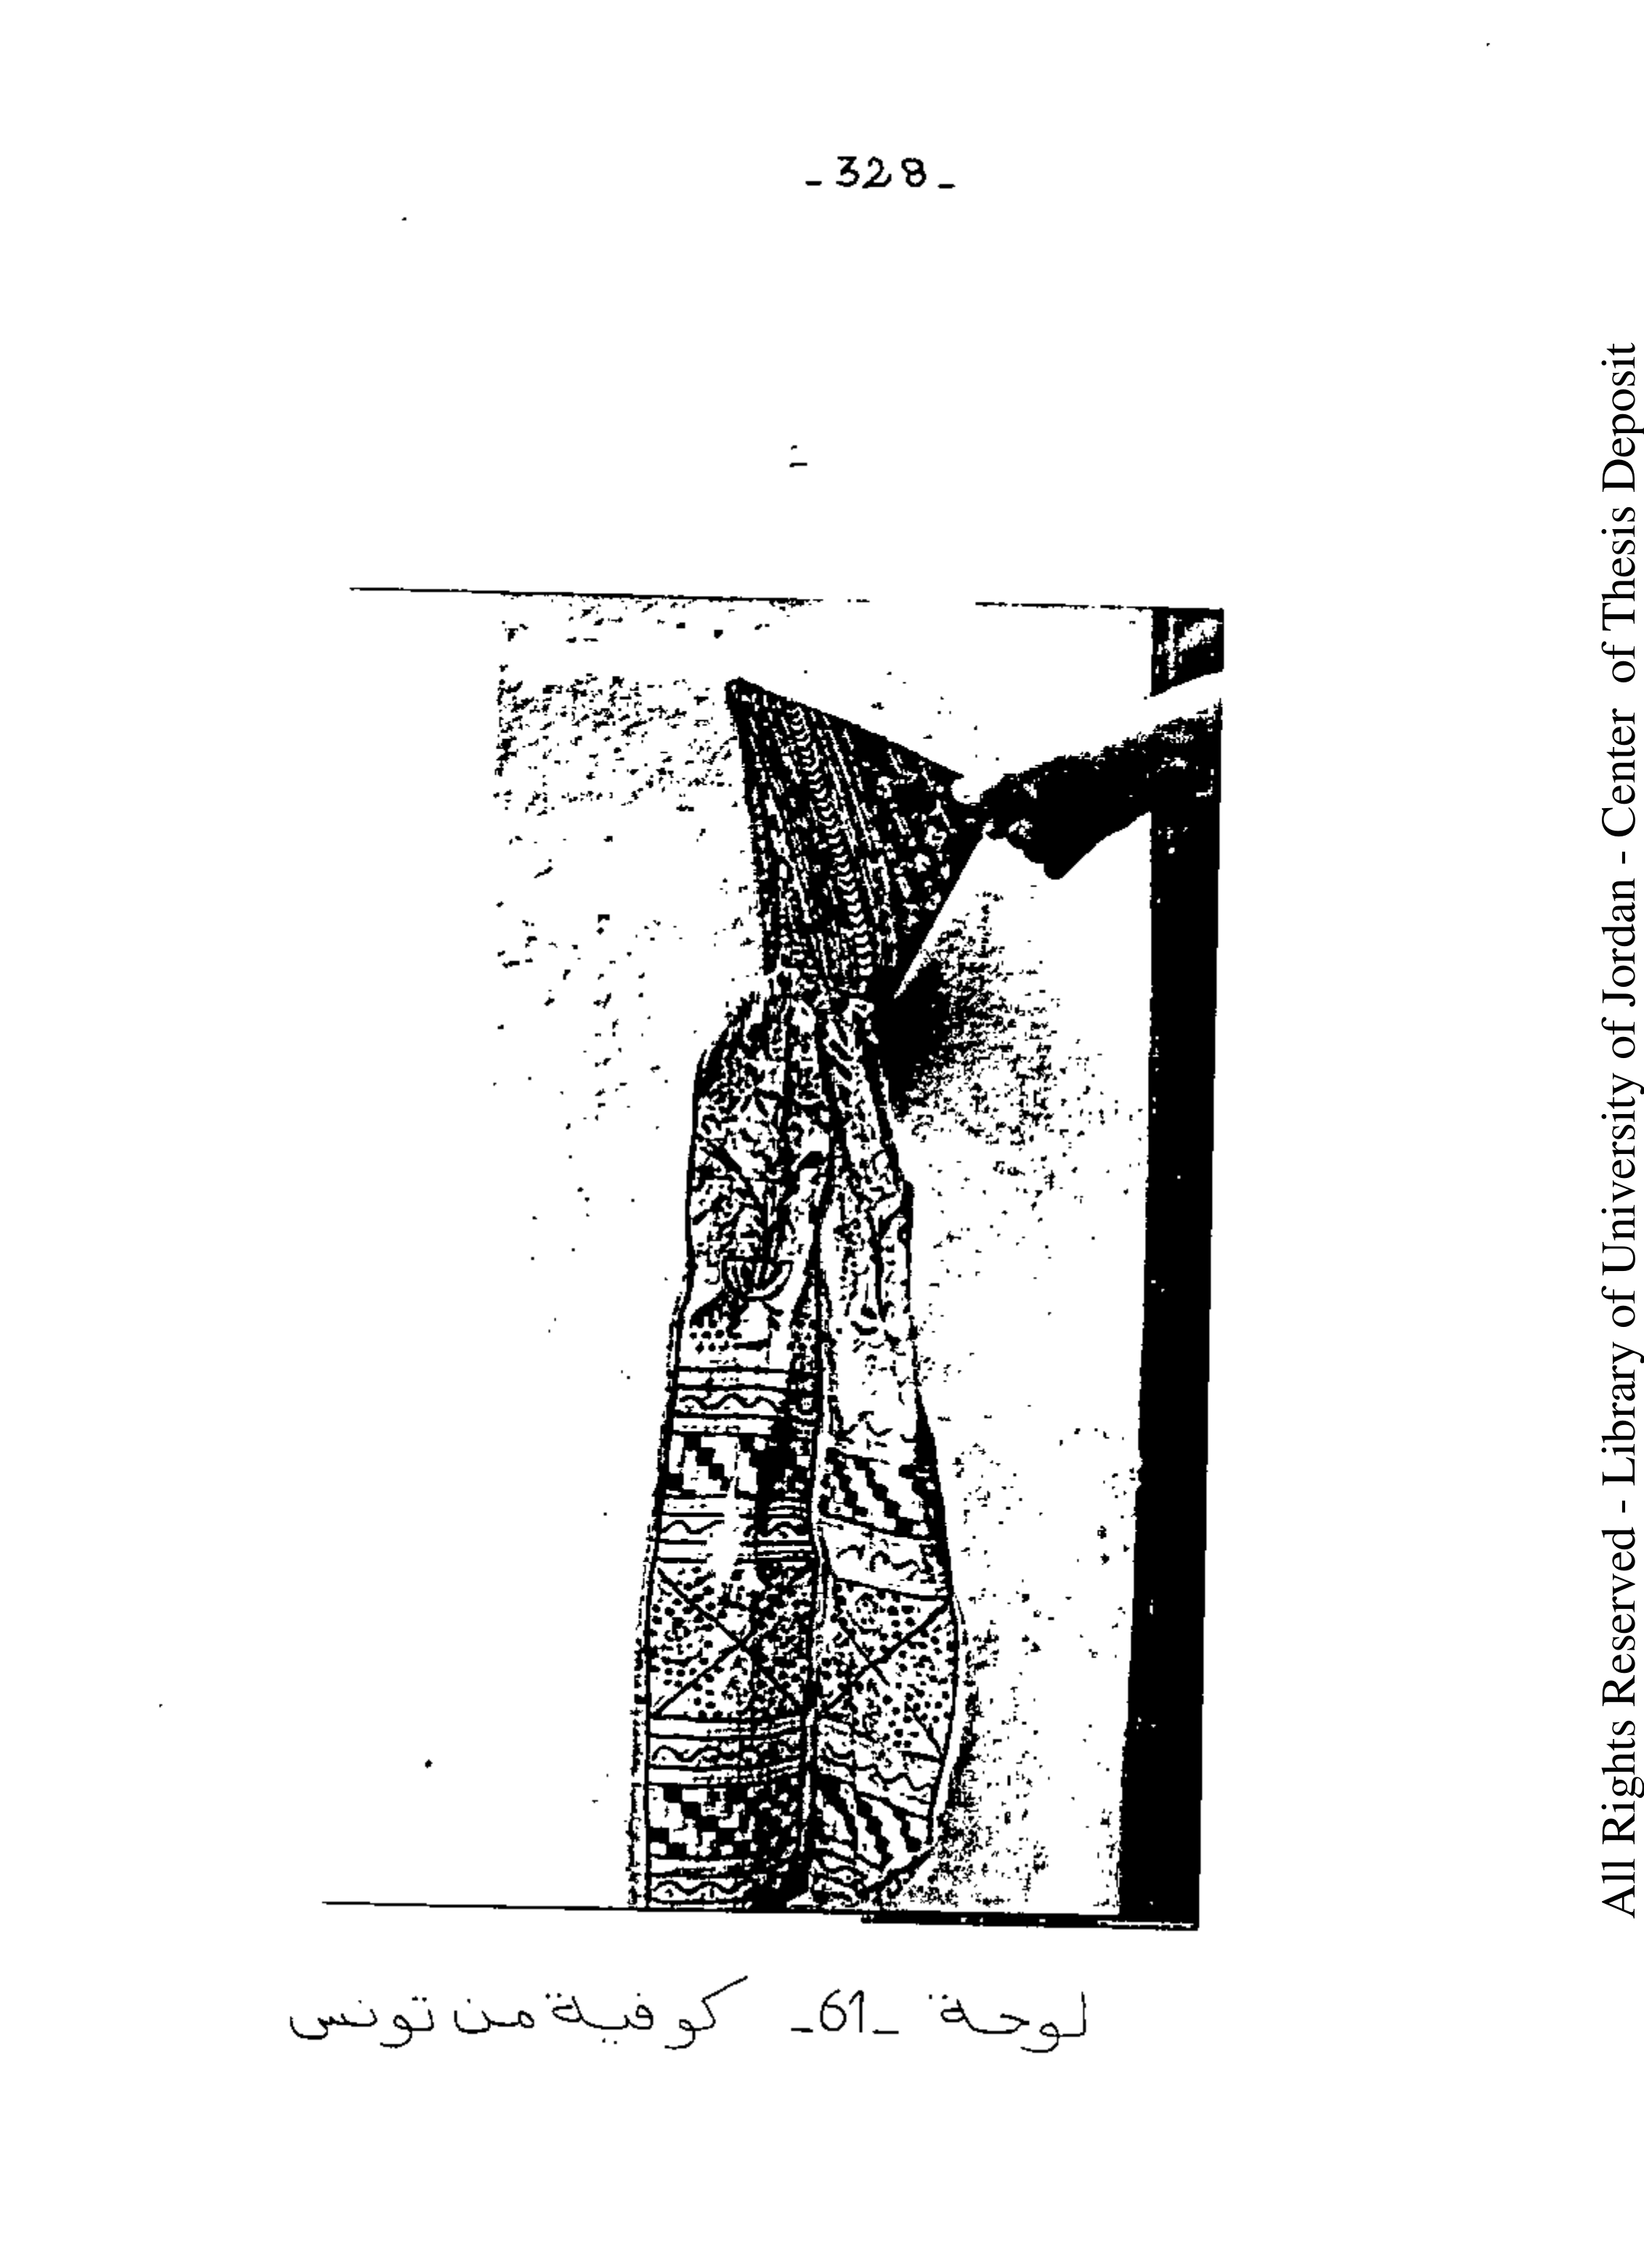 - 328 -
لوحة -61- كوفية من تونس
All Rights Reserved - Library of University of Jordan - Center of Thesis Deposit